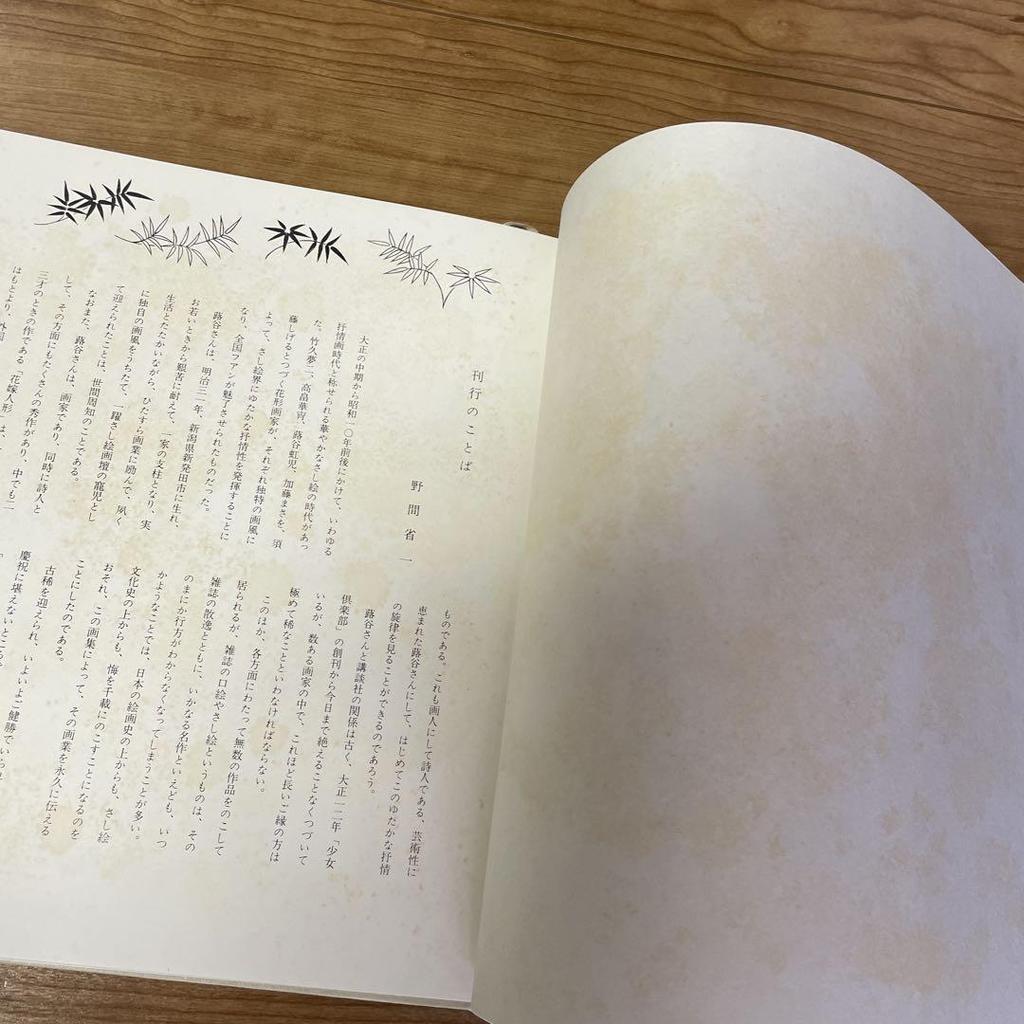 刊行のことば
野間省一
大正の中期から昭和一〇年前後にかけて、いわゆる
抒情画時代と称せられる華やかなさし絵の時代があっ
た。竹久夢二、高畠華宵、蕗谷虹児、加藤まさを、須
藤しげるとつづく花形画家が、それぞれ独特の画風に
よって、さし絵界にゆたかな抒情性を発揮することに
なり、全国ファンが魅了させられたものだった。
蕗谷さんは、明治三一年、新潟県新発田市に生れ、
お若いときから艱苦に耐えて、一家の支柱となり、実
生活とたたかいながら、ひたすら画業に励んで、夙く
に独自の画風をうちたて、一躍さし絵画壇の寵児とし
て迎えられたことは、世間周知のことである。
なおまた、蕗谷さんは、画家であり、同時に詩人と
して、その方面にもたくさんの秀作があり、中でも二
三才のときの作である「花嫁人形」は、
はもとより、外国
ものである。これも画人にして詩人である、芸術性に
恵まれた蕗谷さんにして、はじめてこのゆたかな抒情
の旋律を見ることができるのであろう。
蕗谷さんと講談社の関係は古く、大正一二年「少女
倶楽部」の創刊から今日まで絶えることなくつづいて
いるが、数ある画家の中で、これほど長いご縁の方は
極めて稀なことといわなければならない。
このほか、各方面にわたって無数の作品をのこして
居られるが、雑誌の口絵やさし絵というものは、その
雑誌の散逸とともに、いかなる名作といえども、いつ
のまにか行方がわからなくなってしまうことが多い。
かようなことでは、日本の絵画史の上からも、さし絵
文化史の上からも、悔を千載にのこすことになるのを
おそれ、この画集によって、その画業を永久に伝える
ことにしたのである。
古稀を迎えられ、いよいよご健勝でいられ
慶祝に堪えないところ